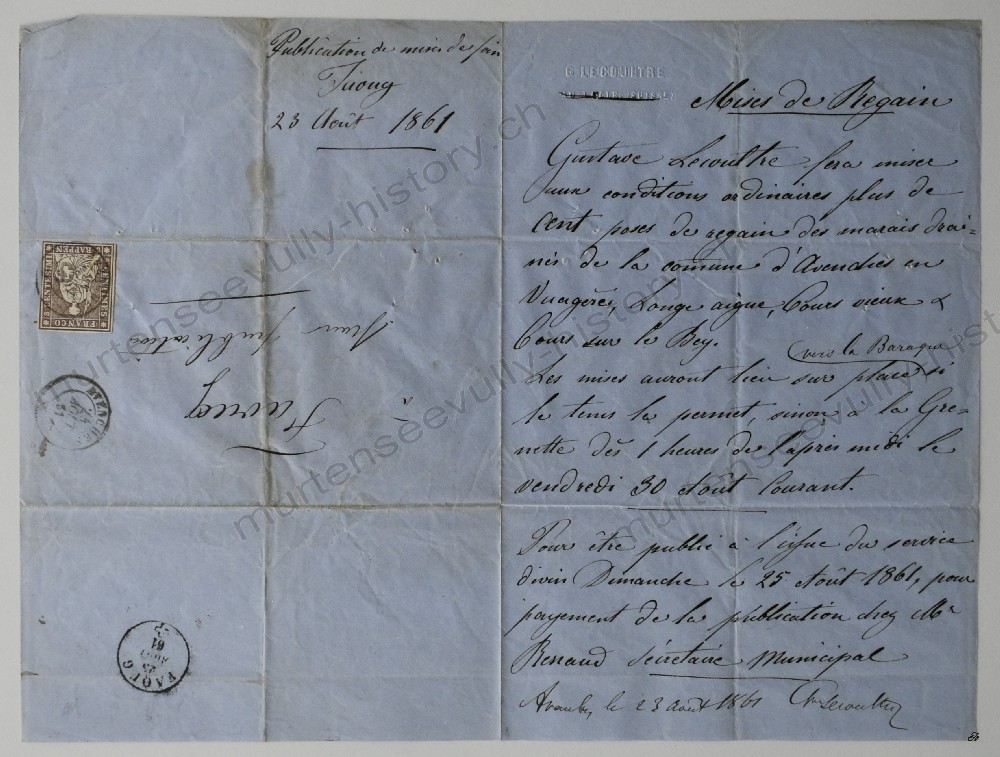 Publication de mises de foin
Faoug
23 Août 1861
G. LECOULTRE
Mises de Regain
Gustave Lecoultre fera miser
aux conditions ordinaires plus de
cent poses de regain des marais drai-
nés de la comune d'Avenches en
Longe aigue, Cours vieux &
Cours sur le Bey.
(vers la Baraque)
Les mises auront lieu sur place si
le tems le permet, sinon à la Gre-
nette dès 1 heures de l'après midi le
vendredi 30 Août courant.
Pour être publié à l'issue du service
divin Dimanche le 25 Août 1861, pour
payement de la publication chez Mr
Renaud sécretaire Municipal
Avenches le 23 août 1861 Gve Lecoultre
FRANCO
RAPPEN
à
Faoug
Pour publication
AVENCHES
FAOUG
61
murtenseevully-history.ch
murtenseevully-history.ch